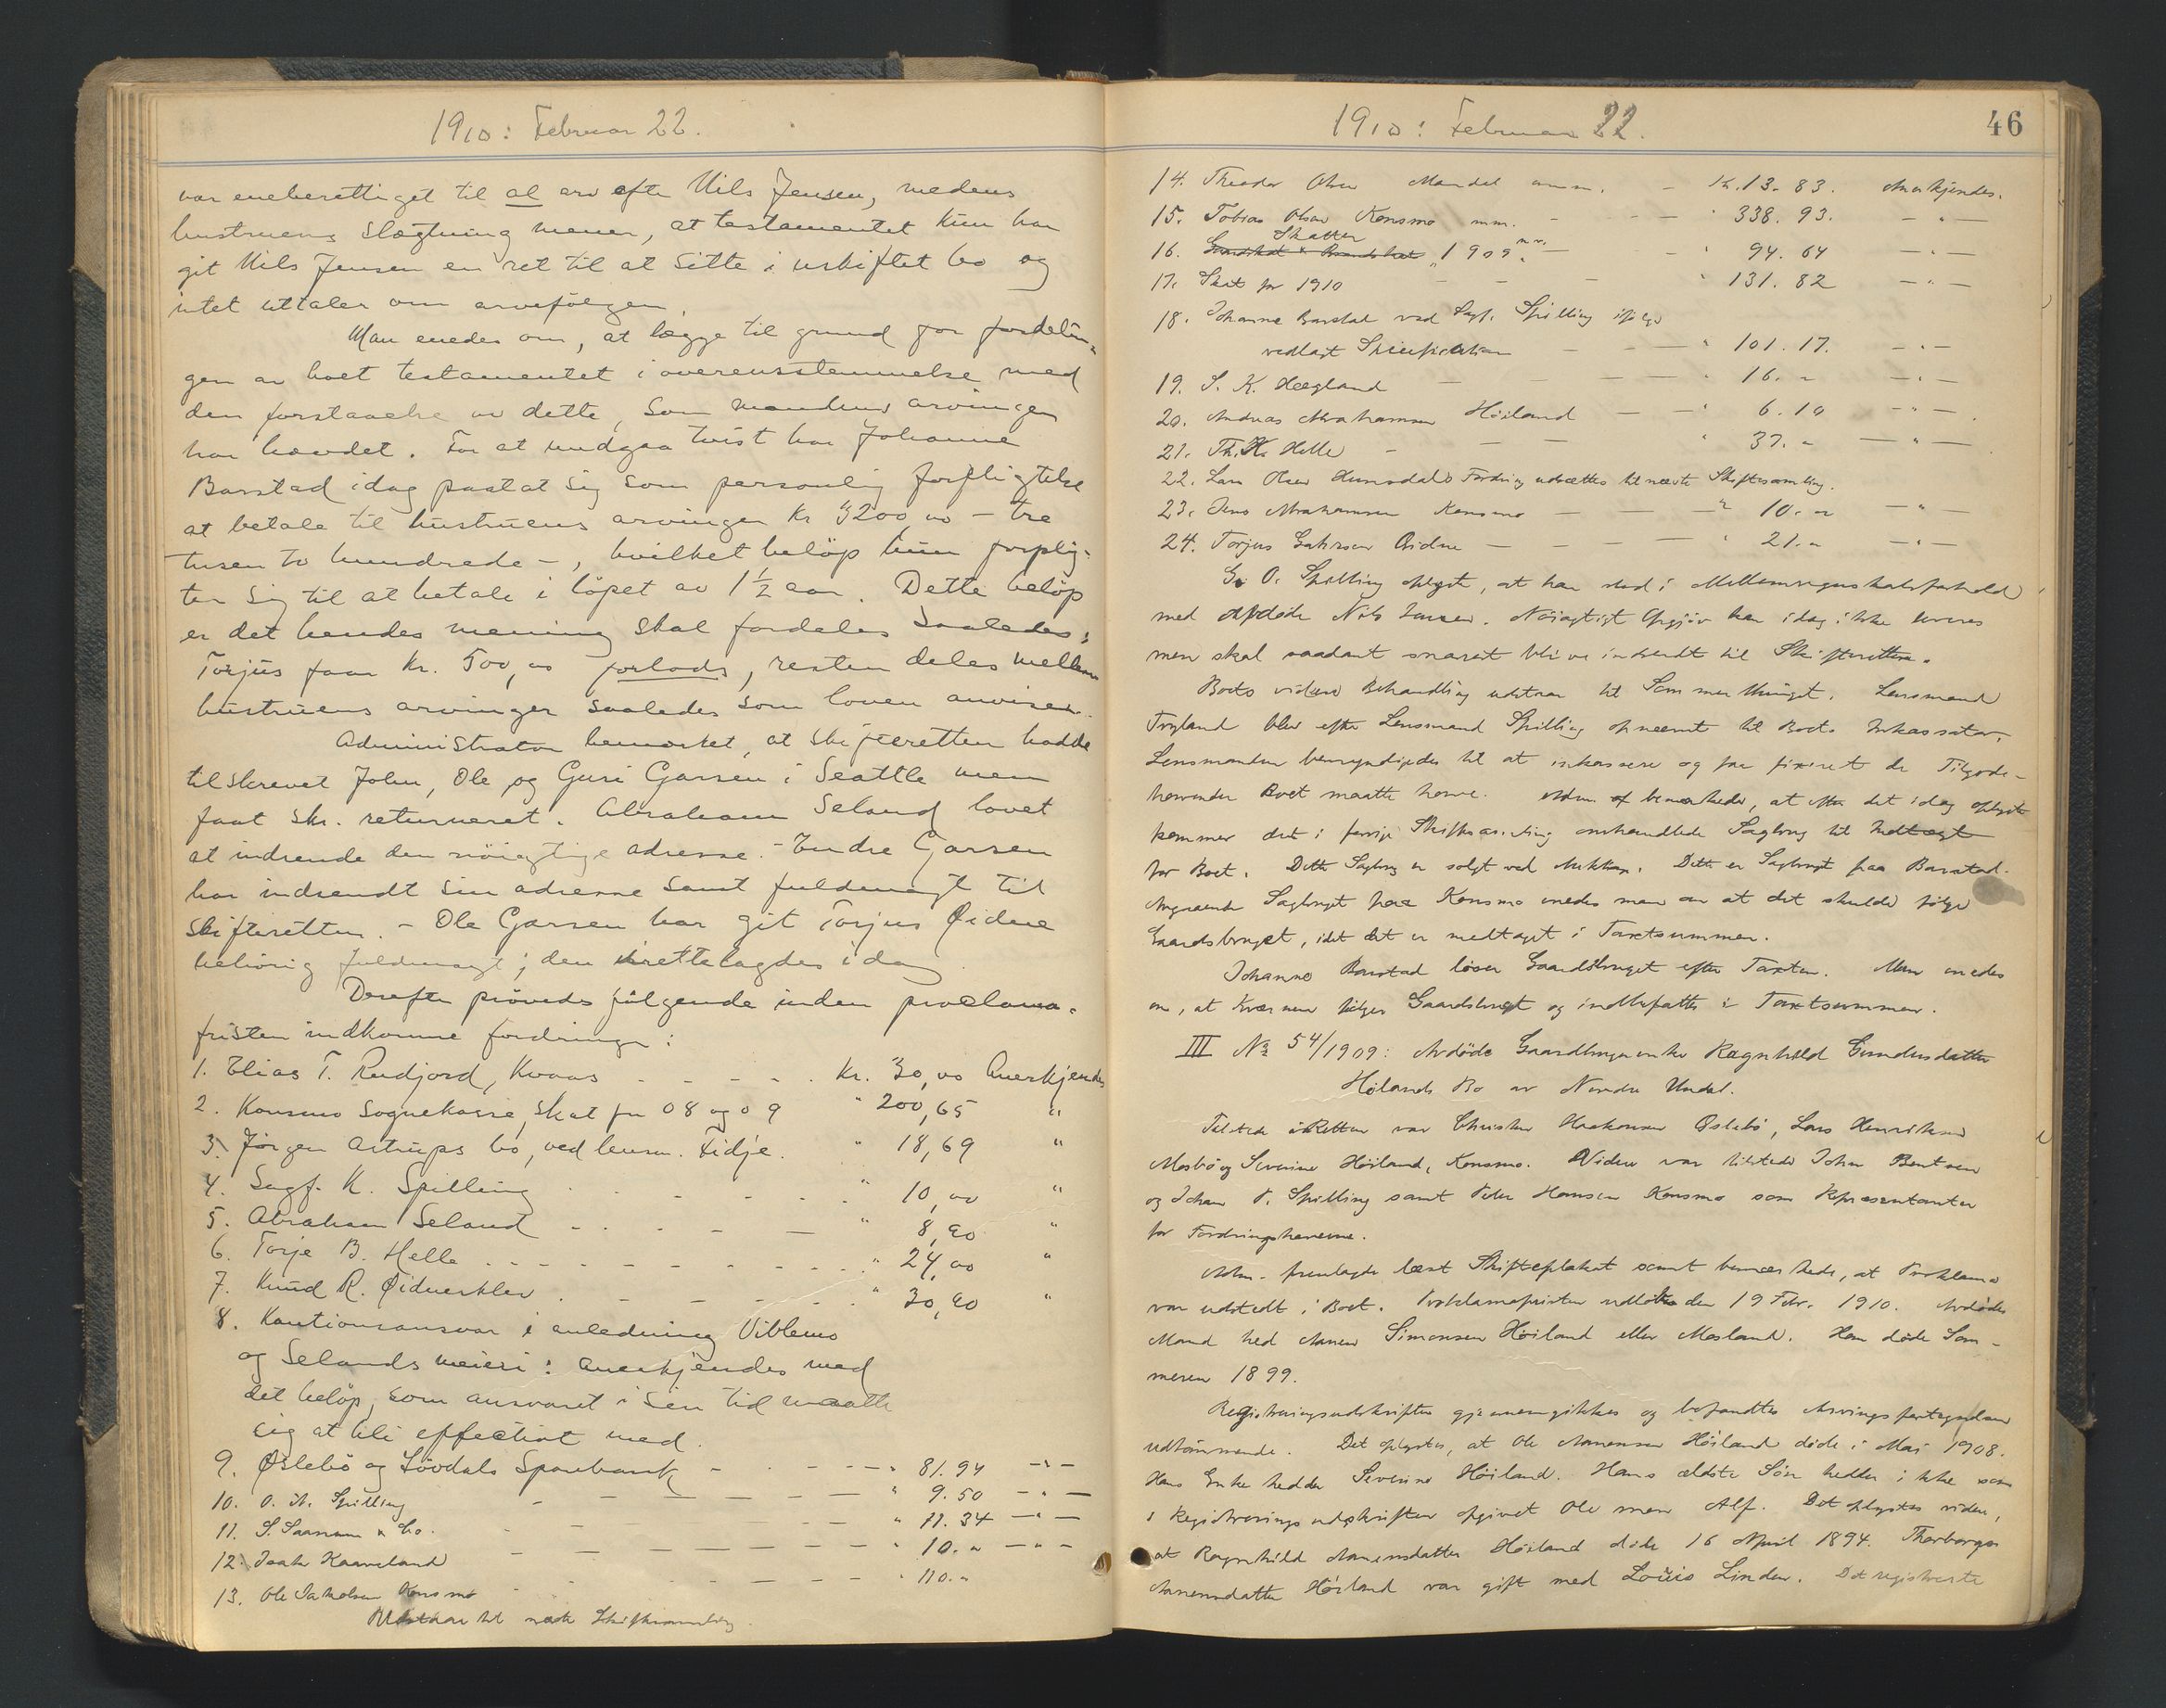 1910: Februar 22.
var eneberettiget til al arv efter Nils Jensen, medens
hustruens slægtning mener, at testamentet kun har
git Nils Jensen en ret til at sitte i uskiftet bo og
intet uttaler om arvefölgen.
Man enedes om, at lægge til grund for fordelin-
gen av boet testamentet i overensstemmelse med
den forstaaelse av dette, som mandens arvinger
har hævdet. For at undgaa tvist har Johanne
Barstad idag paatat sig som personlig forpligtelse
at betale til hustruens arvinger kr 3200,00 - tre
tusen to hundrede -, hvilket belöp hun forplig-
ter sig til at betale i löpet av 1½ aar. Dette belöp
er det hendes mening skal fordeles saaledes:
Torjus faar kr. 500,00 forlods, resten deles mellem
hustruens arvinger saaledes som loven anviser.
Administrator bemerket, at skifteretten hadde
tilskrevet John, Ole og Guri Garsen i Seattle men
faat skr. returneret. Abraham Seland lovet
at indsende den nöiagtige adresse. - Endre Garsen
har indsendt sin adresse samt fuldmagt til
skifteretten. - Ole Garsen har git Torjus Öidne
behörig fuldmagt; den irettelagdes idag.
Derefter prövedes fölgende inden proclama-
fristen indkomne fordringer:
1. Elias T. Rudjord, Kvaas - - - - kr. 30,00 Anerkjendes
2. Konsmo Sognekasse, skat for 08 og 09 " 200,65 "
3. Jörgen Astrups bo, ved lensm. Fidje. " 18,69 "
4. Sagf. K. Spilling - - - - " 10,00 "
5. Abraham Seland - - - - " 8,90 "
6. Torje B. Helle - - - - " 24,00 "
7. Knud R. Øidnesklev - - - - " 30,90 "
8. Kautionsansvar i anledning Viblemo
og Selands meieri: anerkjendes med
det belöp, som ansvaret i sin tid maatte
sig at bli effectivt med.
9. Øslebö og Lövdals Sparebank - - - " 81.94 - " -
10. O. A. Spilling - - - - " 9.50 - " -
11. S. Saanum & Co. - - - - " 11.34 - " -
12. Isak Kaaveland - - - - " 10. " - " -
13. Ole Jakobsen Konsmo - - - - " 110. "
Utstaar til næste Skiftesamling.
1910: Februar 22.
46
14. Theodor Olsen Mandal m.m. - Kr. 13.83. Anerkjendes.
15. Tobias Olsen Konsmo m.m. - - - " 338.93. - " -
16. Skatter 1909 - - " 94.64 - " -
17. Skat for 1910 - - - " 131.82 - " -
18. Johanne Barstad ved Sagf. Spilling ifölge
vedlagt Specifikation - - - " 101.17. - " -
19. S. K. Hægland - - - - " 16. " - " -
20. Andreas Abrahamsen Höiland - - " 6.10 - " -
21. Th. K. Helle - - - " 37. " - " -
22. Lars Olsen Hunsdals Fordring udsættes til næste Skiftesamling.
23. Jens Abrahamsen Konsmo - - - " 10. " - " -
24. Torjus Gabrielsen Öidne - - - - " 21. " - " -
G. O. Spilling oplyste, at han stod i Mellemregnskabsforhold
med afdöde Nils Jensen. Nöiagtigt Opgjör kan idag ikke leveres
men skal saadant snarest blive indsendt til Skifteretten.
Boets videre Behandling udstaar til Sommerthinget. Lensmand
Tryland blev efter Lensmand Spilling opnævnt til Boets Inkassator.
Lensmanden bemyndigedes til at inkassere og faa fixeret de Tilgode-
havender Boet maatte have. Adm. bemærkede, at efter det idag oplyste
kommer det i forrige Skiftesamling omhandlede Sagbrug til Indtægt
for Boet. Dette Sagbrug er solgt ved Auktion. Dette er Sagbruget paa Barstad.
Angaaende Sagbruget paa Konsmo enedes man om at det skulde fölge
Gaardsbruget, idet det er medtaget i Taxtsummen.
Johanne Barstad löser Gaardsbruget efter Taxten. Man enedes
om, at Kværnen fölger Gaardsbruget og indbefattes i Taxtsummen.
III No 54/1909: Avdöde Gaardbrugerenke Ragnhild Gundersdatter
Höilands Bo av Nordre Undal.
Tilstede i Retten var Christen Haakonsen Öslebö, Lars Henriksen
Mosbö og Severine Höiland, Konsmo. Videre var tilstede Johan Bentsen
og Johan P. Spilling samt Peder Hansen Konsmo som Repræsentanter
for Fordringshaverne.
Adm. fremlagde læst Skifteplakat samt bemærkede, at Proklama
var udstedt i Boet. Proklamafristen udlöb den 19 Febr. 1910. Avdödes
Mand hed Aanen Simonsen Höiland eller Mosland. Han döde Som-
meren 1899.
Registreringsudskriften gjennemgikkes og befandtes Arvingsfortegnelsen
udtömmende. Det oplystes, at Ole Aanensen Höiland döde i Mai 1908.
Hans Enke hedder Severine Höiland. Hans ældste Sön hedder ikke som
i Registreringsudskriften opgivet Ole men Alf. Det oplystes videre,
at Ragnhild Aanensdatter Höiland döde 16 April 1894. Thorborg
Aanensdatter Höiland var gift med Louis Linden. Det registrerte